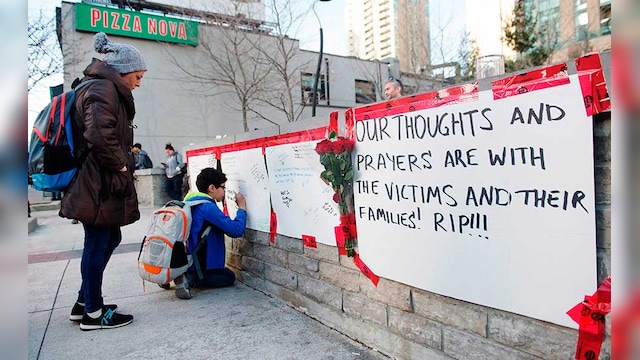 PIZZA NOVA
OUR THOUGHTS AND
PRAYERS ARE WITH
THE VICTIMS AND THEIR
FAMILIES! RIP!!!